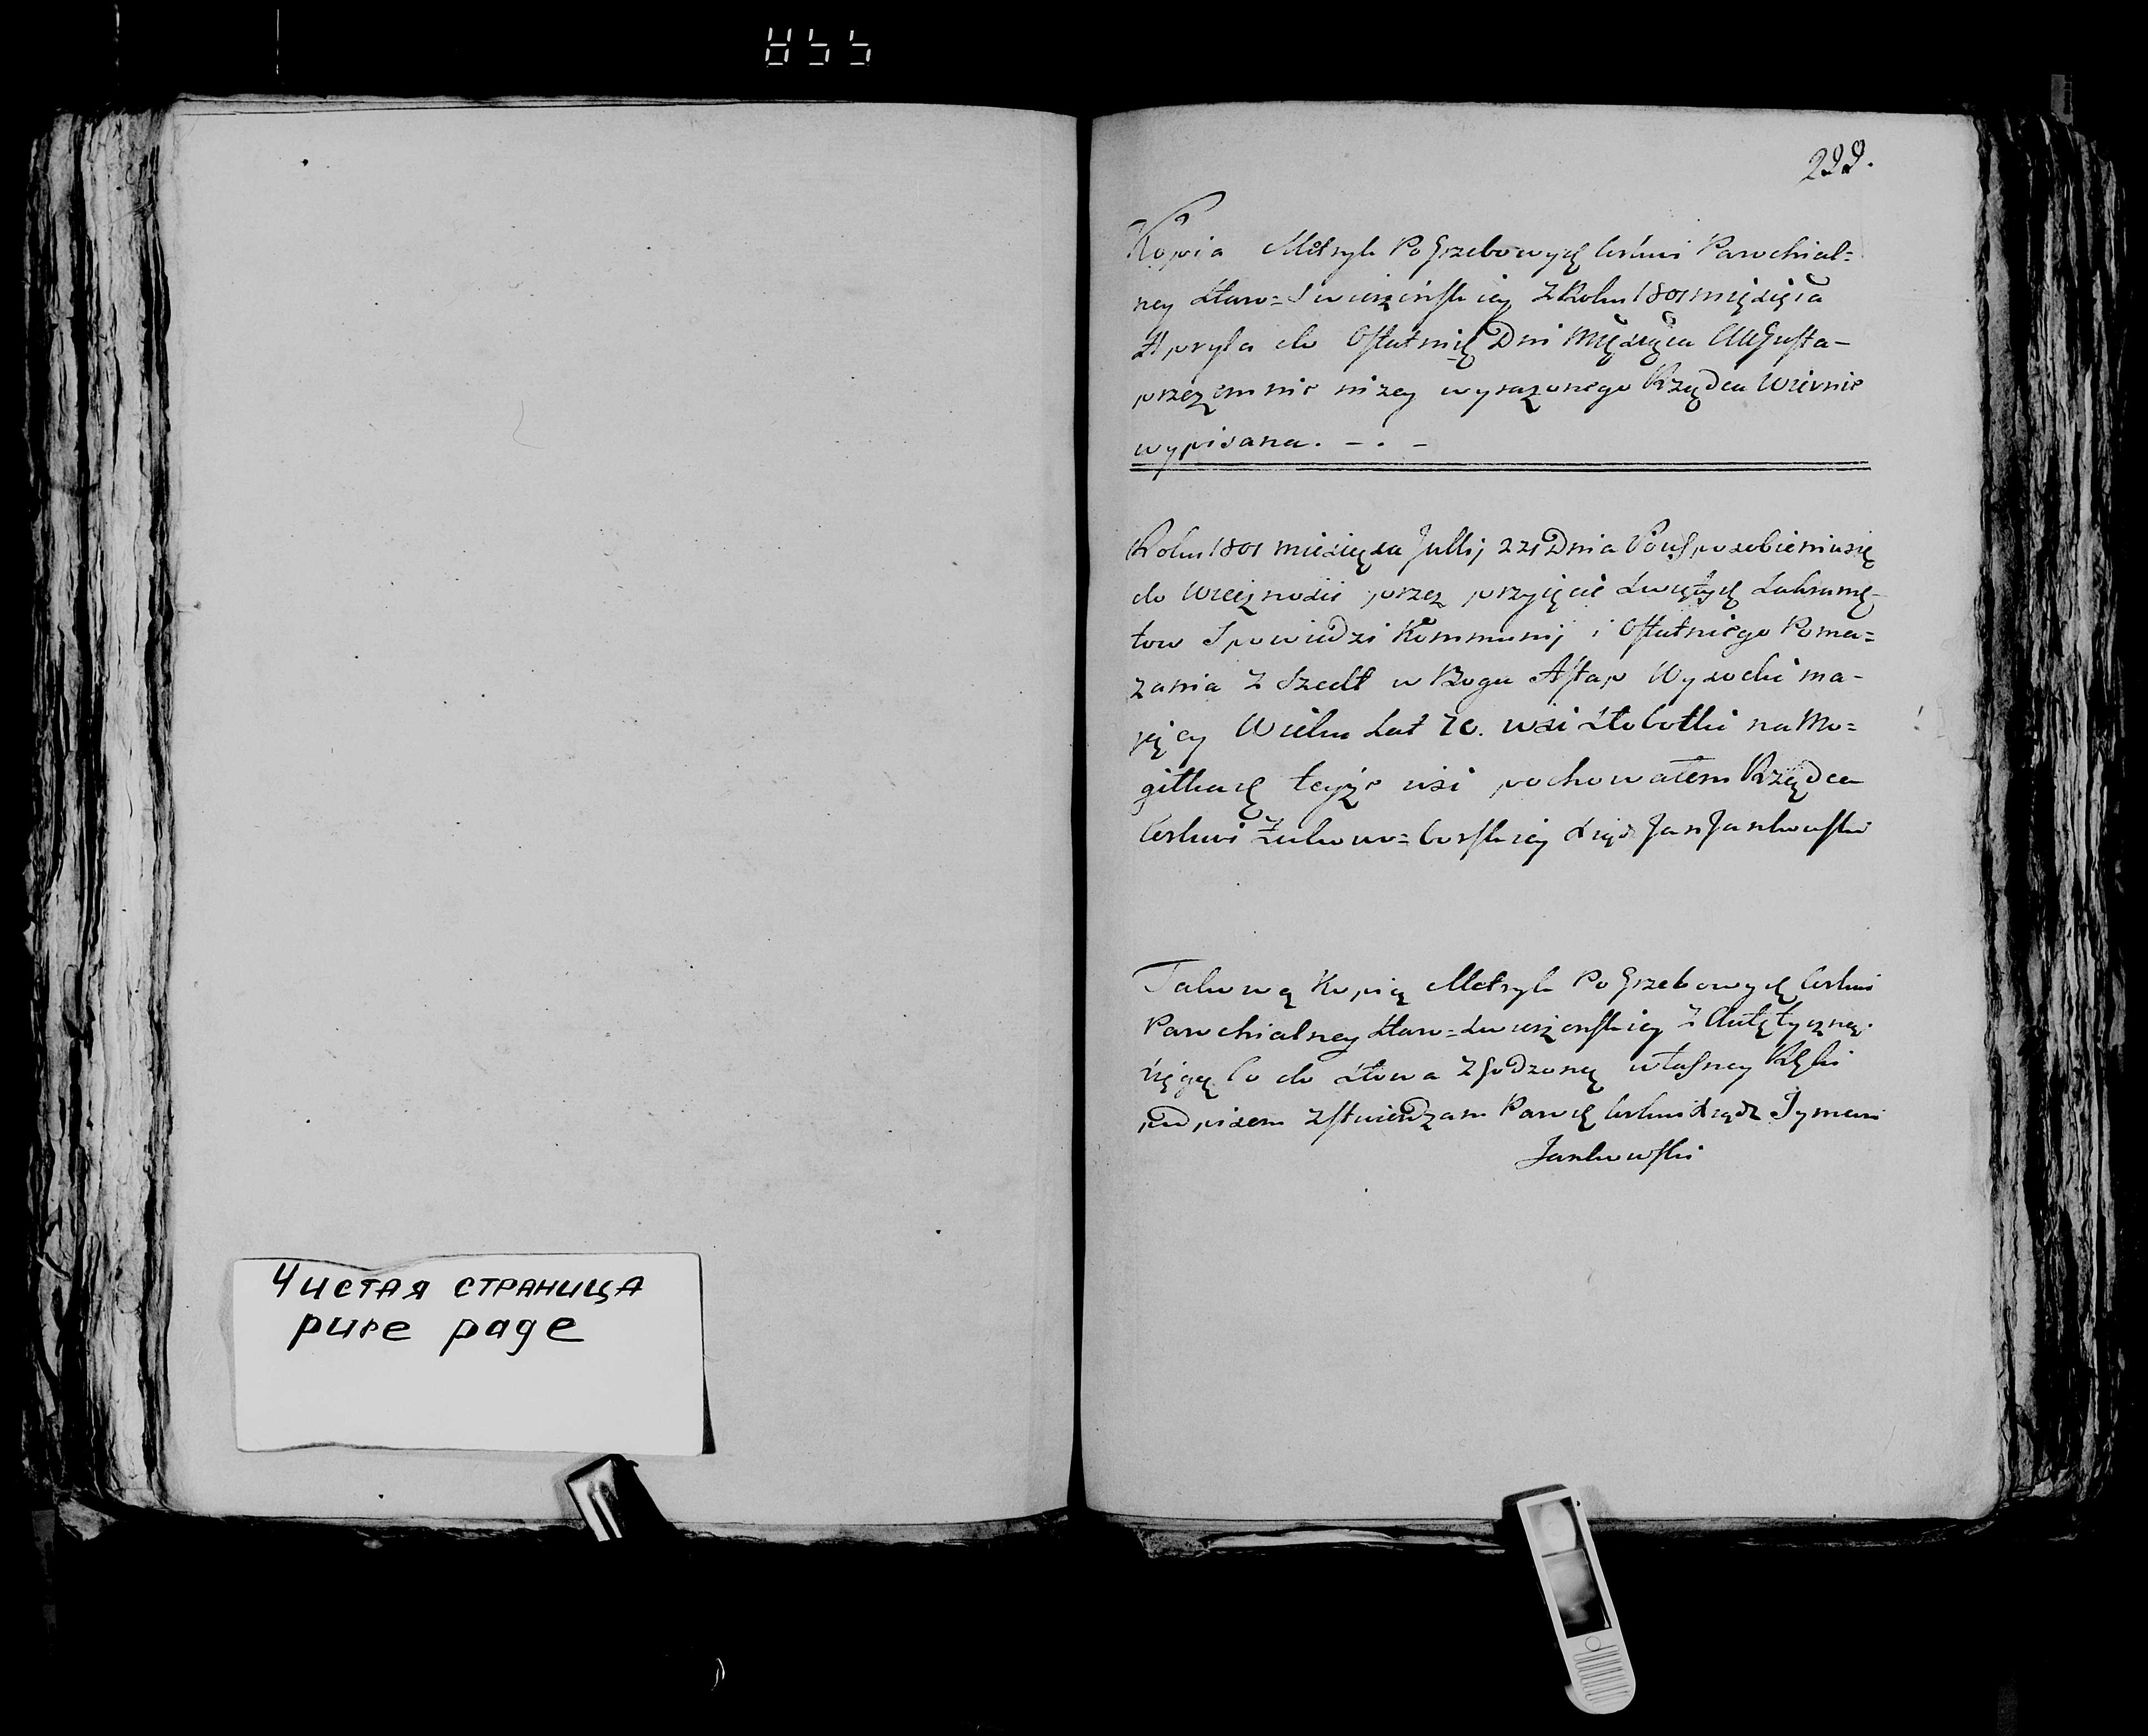 855
Чистая страница
pure page
222.
Kopia Metryk Pogrzebowych Cerkwi Parochial=
ney Staro=Swierzeńskiey z Roku 1801 miesięca
Apryla do Ostatnich Dni Miesięca Augusta –
przezemnie niżey wyrażonego Rządca Wiernie
wypisana. – . –
Roku 1801 miesięca Julij 22 Dnia Po usposobieniu się
do Wiecznosci przez przyjęcie Swiętych Sakramę-
tow Spowiedzi Kommunij i Ostatniego Poma=
zania z Szedł w Bogu Astap Wysocki ma-
jący Wieku Lat 70. wsi Słobotki na Mo=
giłkach teyże wsi pochowałem Rządca
Cerkwi Żukowo=Borskiey Xiądz Jan Jankowski
Takową Kopią Metryk Pogrzebowych Cerkwi
Parochialney Staro=Swierżenskiey z Autętyczną
Xięgą Co do Słowa zgodzoną własney Ręki
podpisem zstwierdzam Paroch Cerkwi Xiądz Symeon
Jankowski